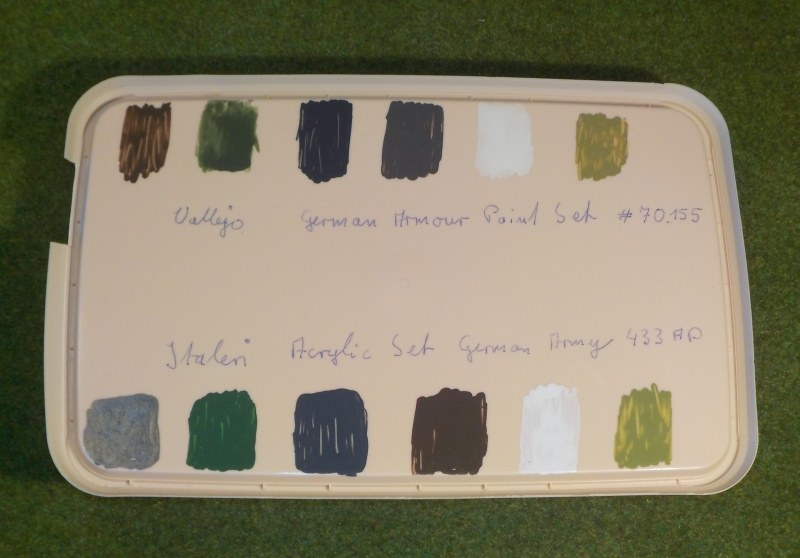 Vallejo German Armour Paint Set #70.155
Italeri Acrylic Set German Army 433 AP